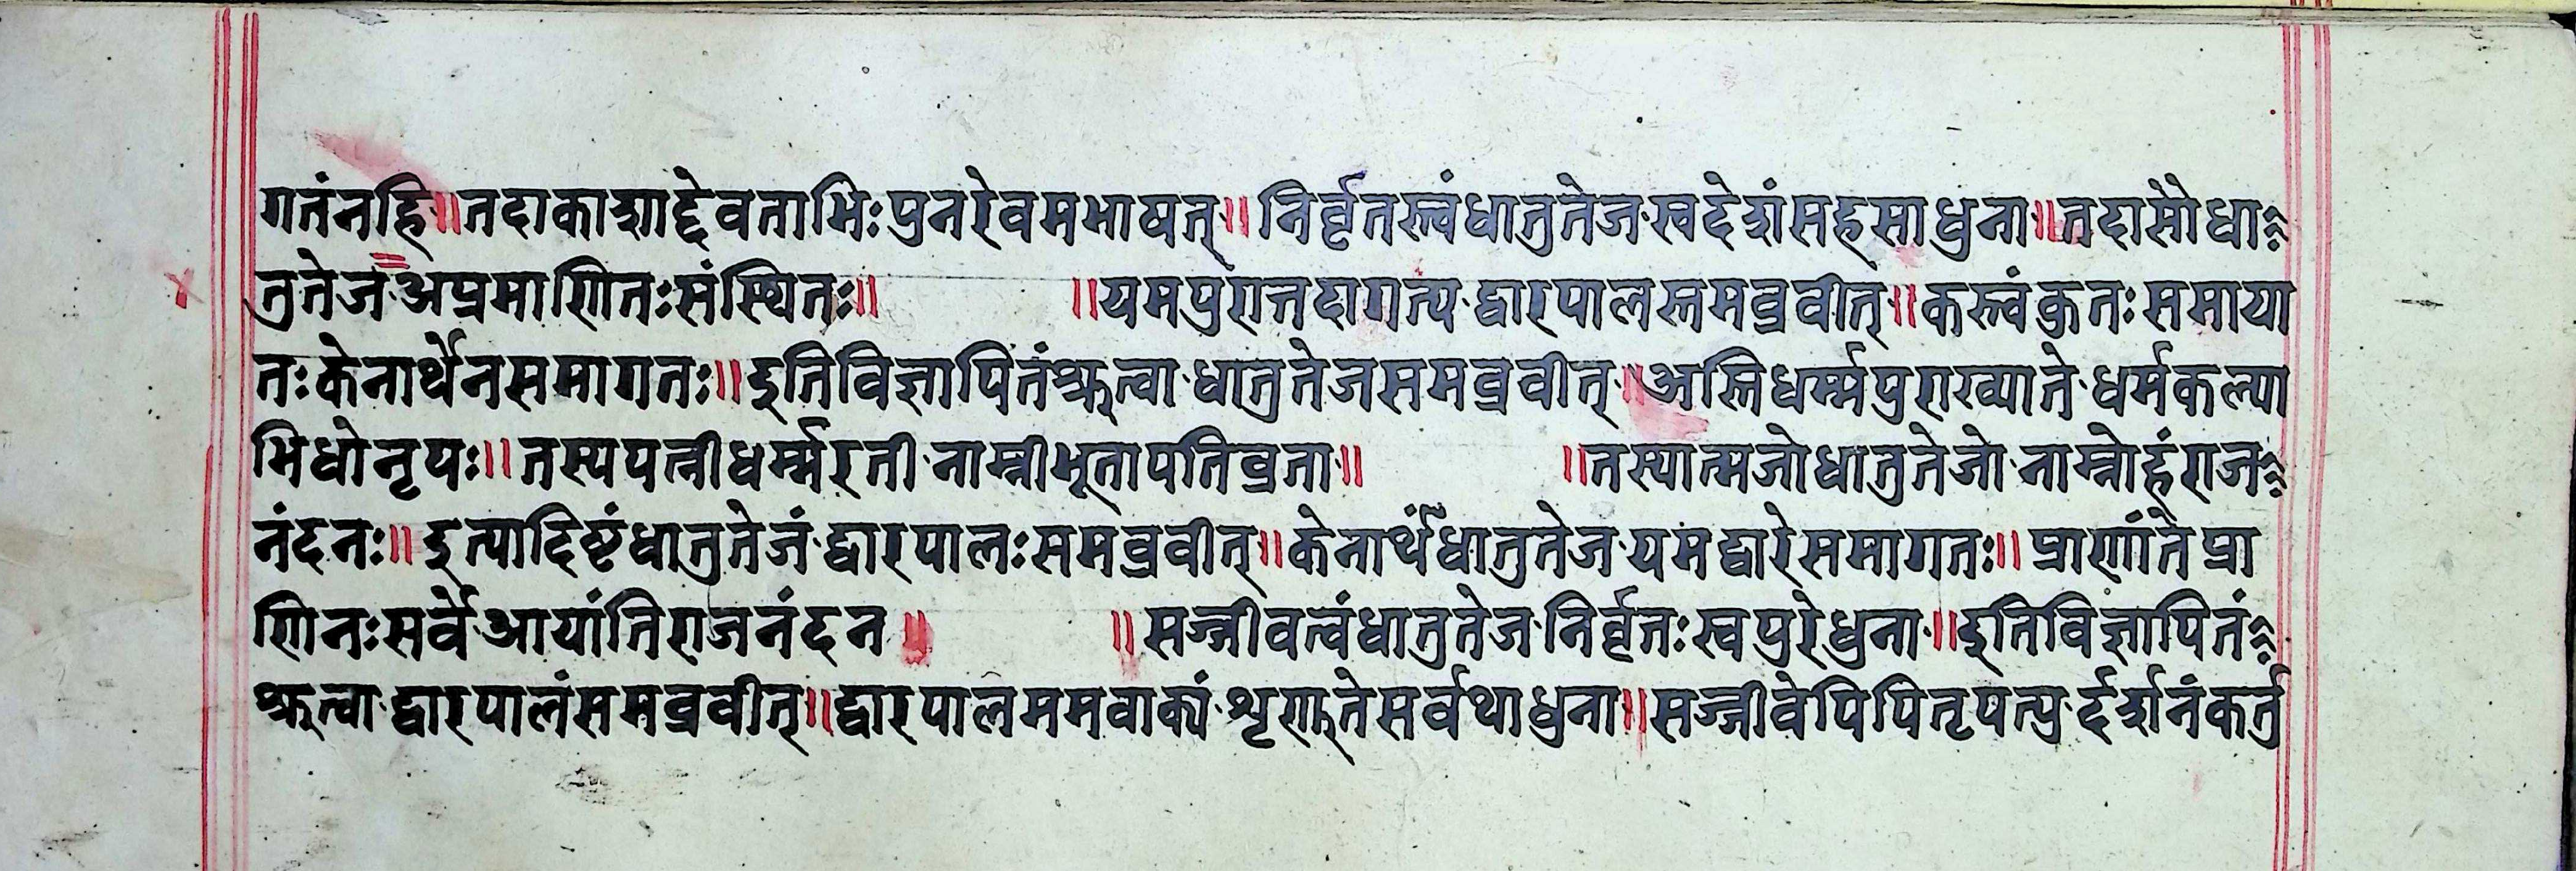 गतंनहि॥तदाकाशाद्देवताभिःपुनरेवमभाषत्॥निर्वृतस्त्वंधातुतेज·स्वदेशंसहसाधुना॥तदासौधा
तुतेज·अप्रमाणितःसंस्थितः॥ ॥यमपुरात्तदागत्य·द्वारपालस्तमव्रवीत्॥कस्त्वंकुतःसमाया
तःकेनार्थेनसमागतः॥इतिविज्ञापितंश्रुत्वा·धातुतेजसमव्रवीत्॥अस्तिधर्म्मपुराख्याते·धर्मकल्या
भिधोनृपः॥तस्यपत्नीधर्म्मरती·नाम्नीभूतापतिव्रता॥ ॥तस्यात्मजोधातुतेजो·नाम्नोहंराज
नंदनः॥इत्यादिष्टंधातुतेजं·द्वारपालःसमव्रवीत्॥केनार्थंधातुतेज·यमद्वारेसमागतः॥प्राणांतेप्रा
णिनःसर्वे·आयांतिराजनंदन॥ ॥सज्जीवत्वंधातुतेज·निर्वृतःस्वपुरेधुना॥इतिविज्ञापितं
श्रुत्वा·द्वारपालंसमव्रवीत्॥द्वारपालममवाक्यं·शृणुतेसर्वथाधुना॥सज्जीवेपिपितृपत्यु·र्दर्शनंकर्तु